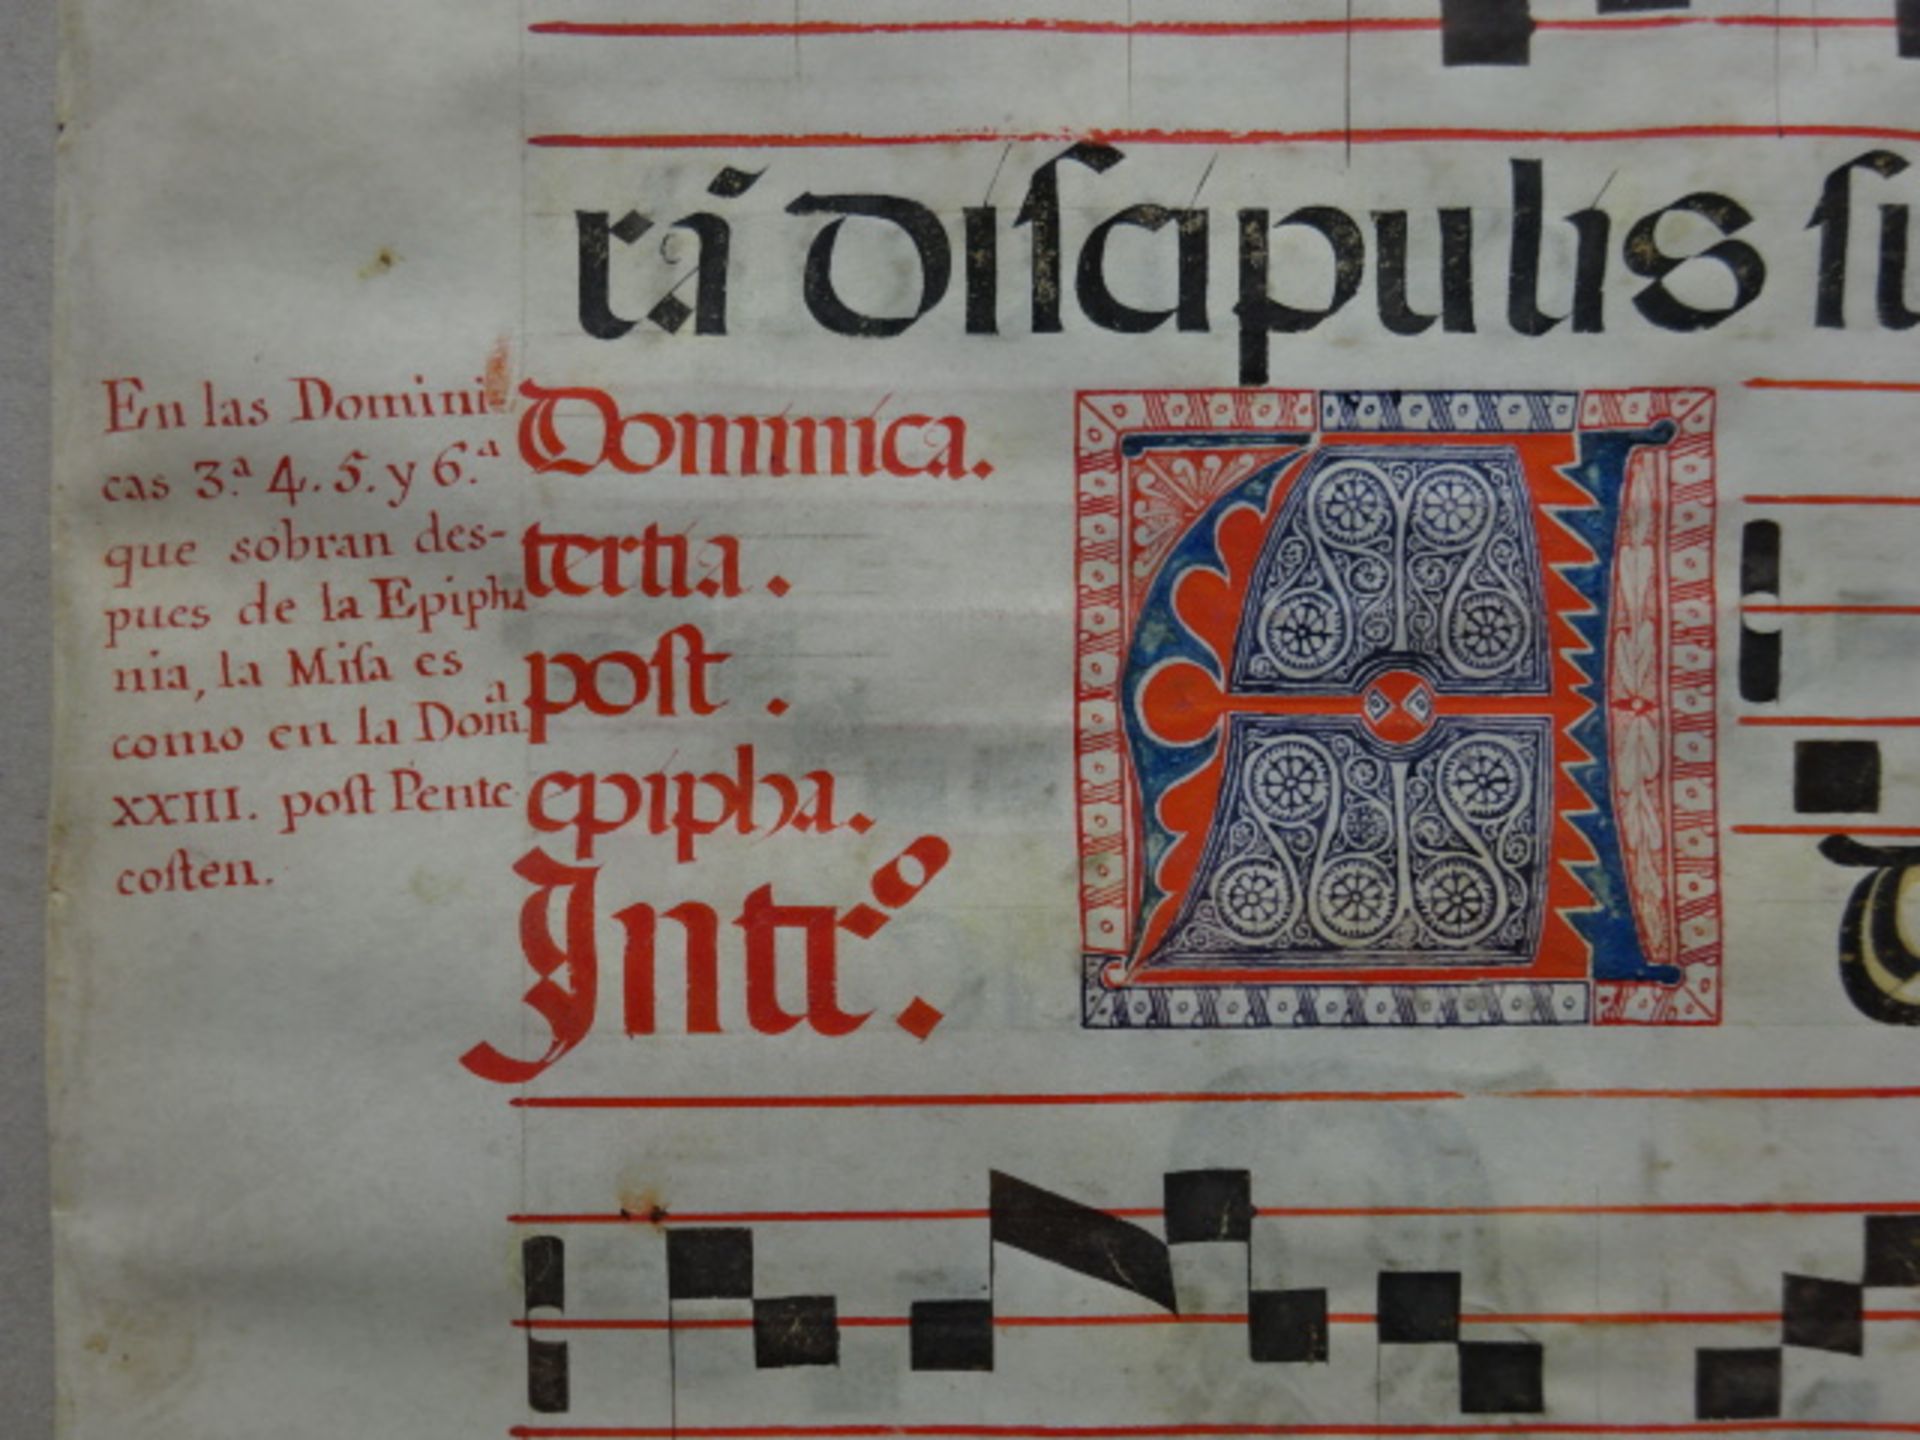 rā diſcipulis ſu
En las Domini
cas 3.ª 4. 5. y 6.ª
que sobran des-
pues de la Epipha
nia, la Miſa es
como en la Domª
XXIII. poſt Pente
coſten.
Dominica.
tertia.
poſt.
epipha.
Intr.º
A